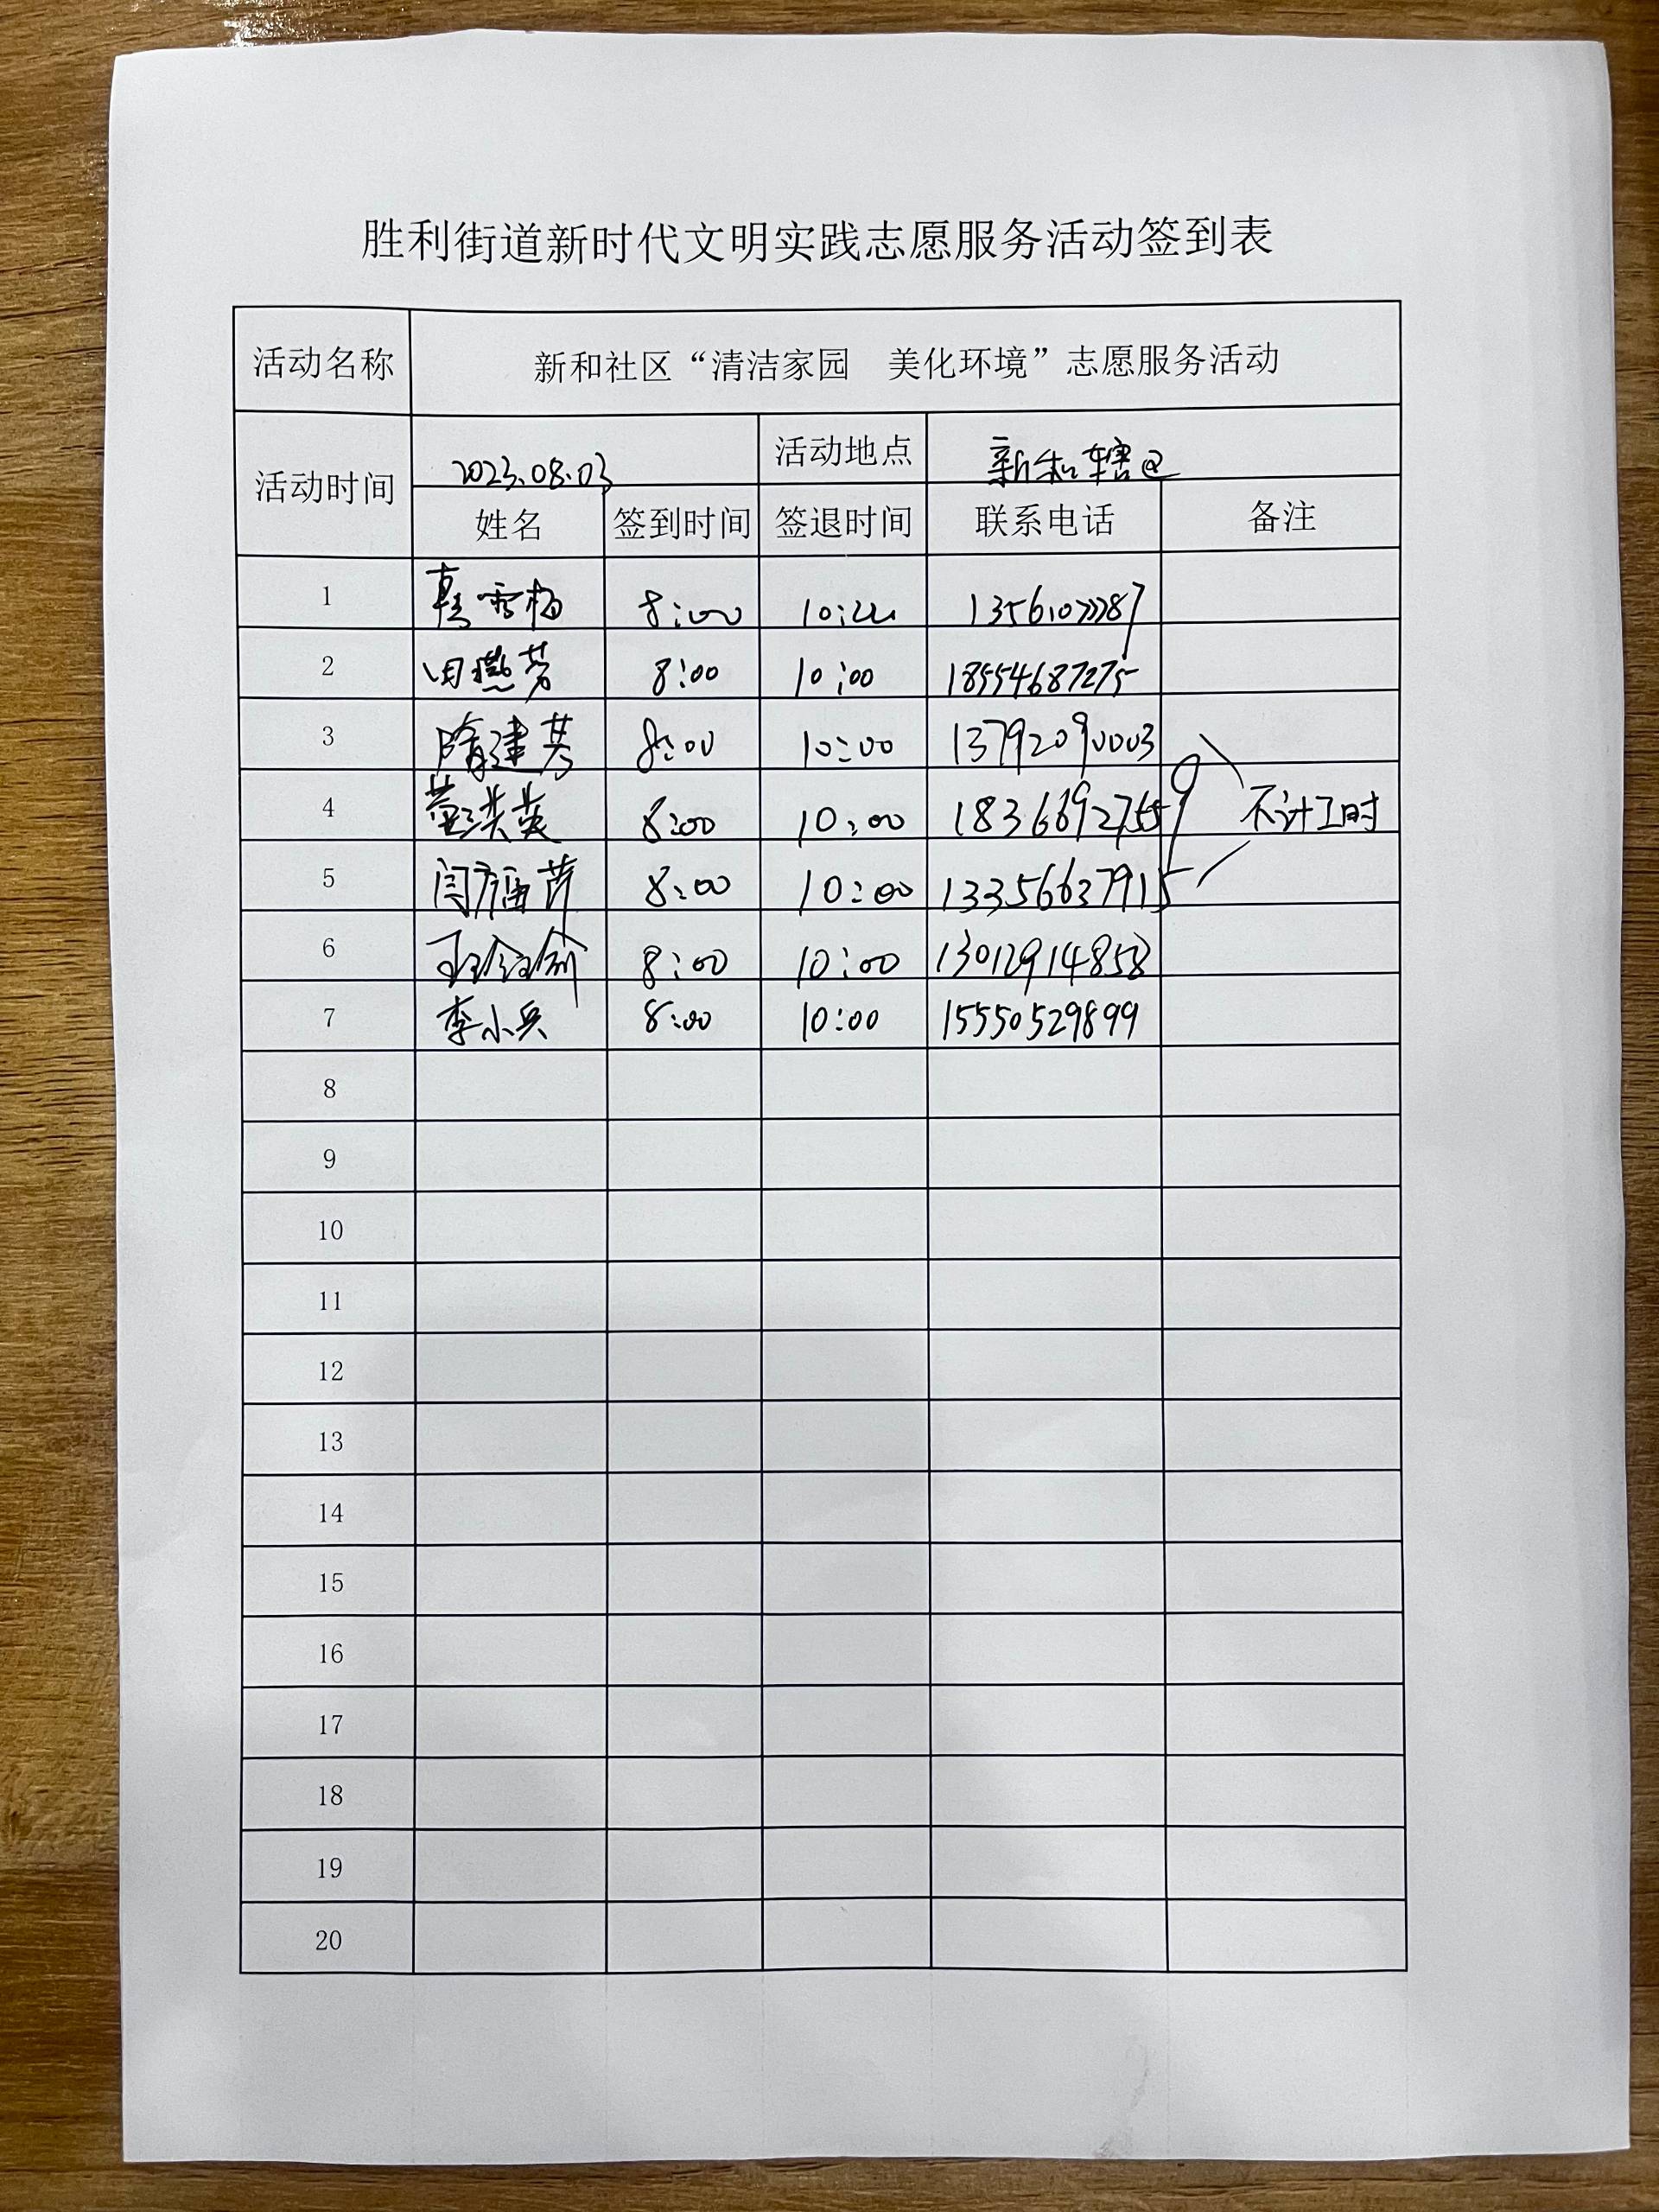 胜利街道新时代文明实践志愿服务活动签到表
活动名称 新和社区“清洁家园 美化环境”志愿服务活动
活动时间 2023.08.03 活动地点 新和辖区
姓名 签到时间 签退时间 联系电话 备注
1 8:00 10:00
2 田燕芳 8:00 10:00 18554687275
3 隋建芳 8:00 10:00 13792090003
4 董洪英 8:00 10:00 不计工时
5 闫福萍 8:00 10:00 13356637915
6 8:00 10:00 13012914858
7 李小兵 8:00 10:00 15550529899
8
9
10
11
12
13
14
15
16
17
18
19
20